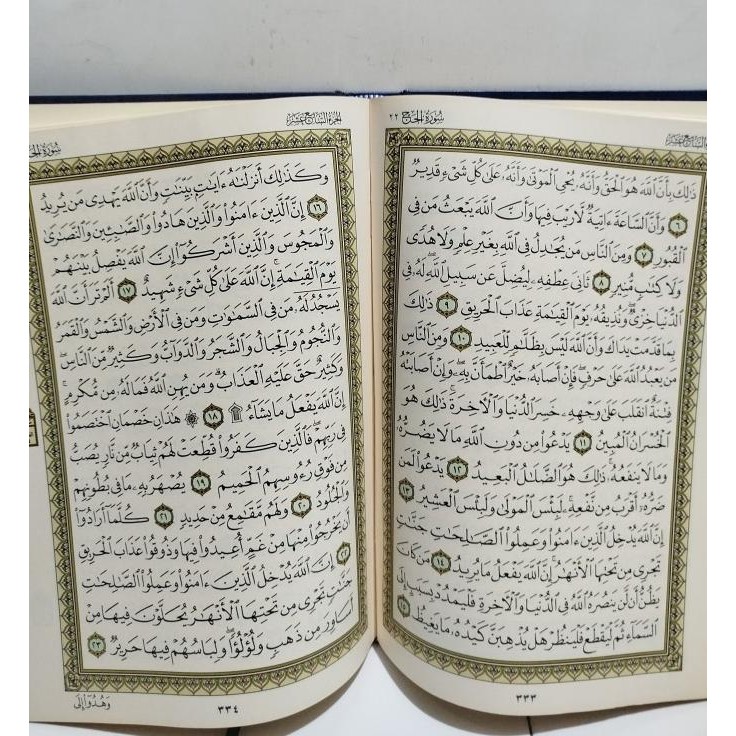 سُورَةُ الحَجِّ ٢٢
ذَٰلِكَ بِأَنَّ ٱللَّهَ هُوَ ٱلْحَقُّ وَأَنَّهُۥ يُحْىِ ٱلْمَوْتَىٰ وَأَنَّهُۥ عَلَىٰ كُلِّ شَىْءٍ قَدِيرٌ
٦ وَأَنَّ ٱلسَّاعَةَ ءَاتِيَةٌ لَّا رَيْبَ فِيهَا وَأَنَّ ٱللَّهَ يَبْعَثُ مَن فِى
ٱلْقُبُورِ ٧ وَمِنَ ٱلنَّاسِ مَن يُجَٰدِلُ فِى ٱللَّهِ بِغَيْرِ عِلْمٍ وَلَا هُدًى
وَلَا كِتَٰبٍ مُّنِيرٍ ٨ ثَانِىَ عِطْفِهِۦ لِيُضِلَّ عَن سَبِيلِ ٱللَّهِ لَهُۥ فِى
ٱلدُّنْيَا خِزْىٌ وَنُذِيقُهُۥ يَوْمَ ٱلْقِيَٰمَةِ عَذَابَ ٱلْحَرِيقِ ٩ ذَٰلِكَ
بِمَا قَدَّمَتْ يَدَاكَ وَأَنَّ ٱللَّهَ لَيْسَ بِظَلَّٰمٍ لِّلْعَبِيدِ ١٠ وَمِنَ ٱلنَّاسِ
مَن يَعْبُدُ ٱللَّهَ عَلَىٰ حَرْفٍ فَإِنْ أَصَابَهُۥ خَيْرٌ ٱطْمَأَنَّ بِهِۦ وَإِنْ أَصَابَتْهُ
فِتْنَةٌ ٱنقَلَبَ عَلَىٰ وَجْهِهِۦ خَسِرَ ٱلدُّنْيَا وَٱلْءَاخِرَةَ ذَٰلِكَ هُوَ
ٱلْخُسْرَانُ ٱلْمُبِينُ ١١ يَدْعُوا۟ مِن دُونِ ٱللَّهِ مَا لَا يَضُرُّهُۥ
وَمَا لَا يَنفَعُهُۥ ذَٰلِكَ هُوَ ٱلضَّلَٰلُ ٱلْبَعِيدُ ١٢ يَدْعُوا۟ لَمَن
ضَرُّهُۥٓ أَقْرَبُ مِن نَّفْعِهِۦ لَبِئْسَ ٱلْمَوْلَىٰ وَلَبِئْسَ ٱلْعَشِيرُ ١٣
إِنَّ ٱللَّهَ يُدْخِلُ ٱلَّذِينَ ءَامَنُوا۟ وَعَمِلُوا۟ ٱلصَّٰلِحَٰتِ جَنَّٰتٍ
تَجْرِى مِن تَحْتِهَا ٱلْأَنْهَٰرُ إِنَّ ٱللَّهَ يَفْعَلُ مَا يُرِيدُ ١٤ مَن كَانَ
يَظُنُّ أَن لَّن يَنصُرَهُ ٱللَّهُ فِى ٱلدُّنْيَا وَٱلْءَاخِرَةِ فَلْيَمْدُدْ بِسَبَبٍ إِلَى
ٱلسَّمَآءِ ثُمَّ لْيَقْطَعْ فَلْيَنظُرْ هَلْ يُذْهِبَنَّ كَيْدُهُۥ مَا يَغِيظُ ١٥
٣٣٣
الجزء السابع عشر
وَكَذَٰلِكَ أَنزَلْنَٰهُ ءَايَٰتٍۭ بَيِّنَٰتٍ وَأَنَّ ٱللَّهَ يَهْدِى مَن يُرِيدُ
١٦ إِنَّ ٱلَّذِينَ ءَامَنُوا۟ وَٱلَّذِينَ هَادُوا۟ وَٱلصَّٰبِـِٔينَ وَٱلنَّصَٰرَىٰ
وَٱلْمَجُوسَ وَٱلَّذِينَ أَشْرَكُوٓا۟ إِنَّ ٱللَّهَ يَفْصِلُ بَيْنَهُمْ
يَوْمَ ٱلْقِيَٰمَةِ إِنَّ ٱللَّهَ عَلَىٰ كُلِّ شَىْءٍ شَهِيدٌ ١٧ أَلَمْ تَرَ أَنَّ ٱللَّهَ
يَسْجُدُ لَهُۥ مَن فِى ٱلسَّمَٰوَٰتِ وَمَن فِى ٱلْأَرْضِ وَٱلشَّمْسُ وَٱلْقَمَرُ
وَٱلنُّجُومُ وَٱلْجِبَالُ وَٱلشَّجَرُ وَٱلدَّوَآبُّ وَكَثِيرٌ مِّنَ ٱلنَّاسِ
وَكَثِيرٌ حَقَّ عَلَيْهِ ٱلْعَذَابُ وَمَن يُهِنِ ٱللَّهُ فَمَا لَهُۥ مِن مُّكْرِمٍ
إِنَّ ٱللَّهَ يَفْعَلُ مَا يَشَآءُ ۩ ١٨ ۞ هَٰذَانِ خَصْمَانِ ٱخْتَصَمُوا۟
فِى رَبِّهِمْ فَٱلَّذِينَ كَفَرُوا۟ قُطِّعَتْ لَهُمْ ثِيَابٌ مِّن نَّارٍ يُصَبُّ
مِن فَوْقِ رُءُوسِهِمُ ٱلْحَمِيمُ ١٩ يُصْهَرُ بِهِۦ مَا فِى بُطُونِهِمْ
وَٱلْجُلُودُ ٢٠ وَلَهُم مَّقَٰمِعُ مِنْ حَدِيدٍ ٢١ كُلَّمَآ أَرَادُوٓا۟
أَن يَخْرُجُوا۟ مِنْهَا مِنْ غَمٍّ أُعِيدُوا۟ فِيهَا وَذُوقُوا۟ عَذَابَ ٱلْحَرِيقِ
٢٢ إِنَّ ٱللَّهَ يُدْخِلُ ٱلَّذِينَ ءَامَنُوا۟ وَعَمِلُوا۟ ٱلصَّٰلِحَٰتِ
جَنَّٰتٍ تَجْرِى مِن تَحْتِهَا ٱلْأَنْهَٰرُ يُحَلَّوْنَ فِيهَا مِنْ
أَسَاوِرَ مِن ذَهَبٍ وَلُؤْلُؤًا وَلِبَاسُهُمْ فِيهَا حَرِيرٌ ٢٣
وَهُدُوٓا۟ إِلَى
٣٣٤